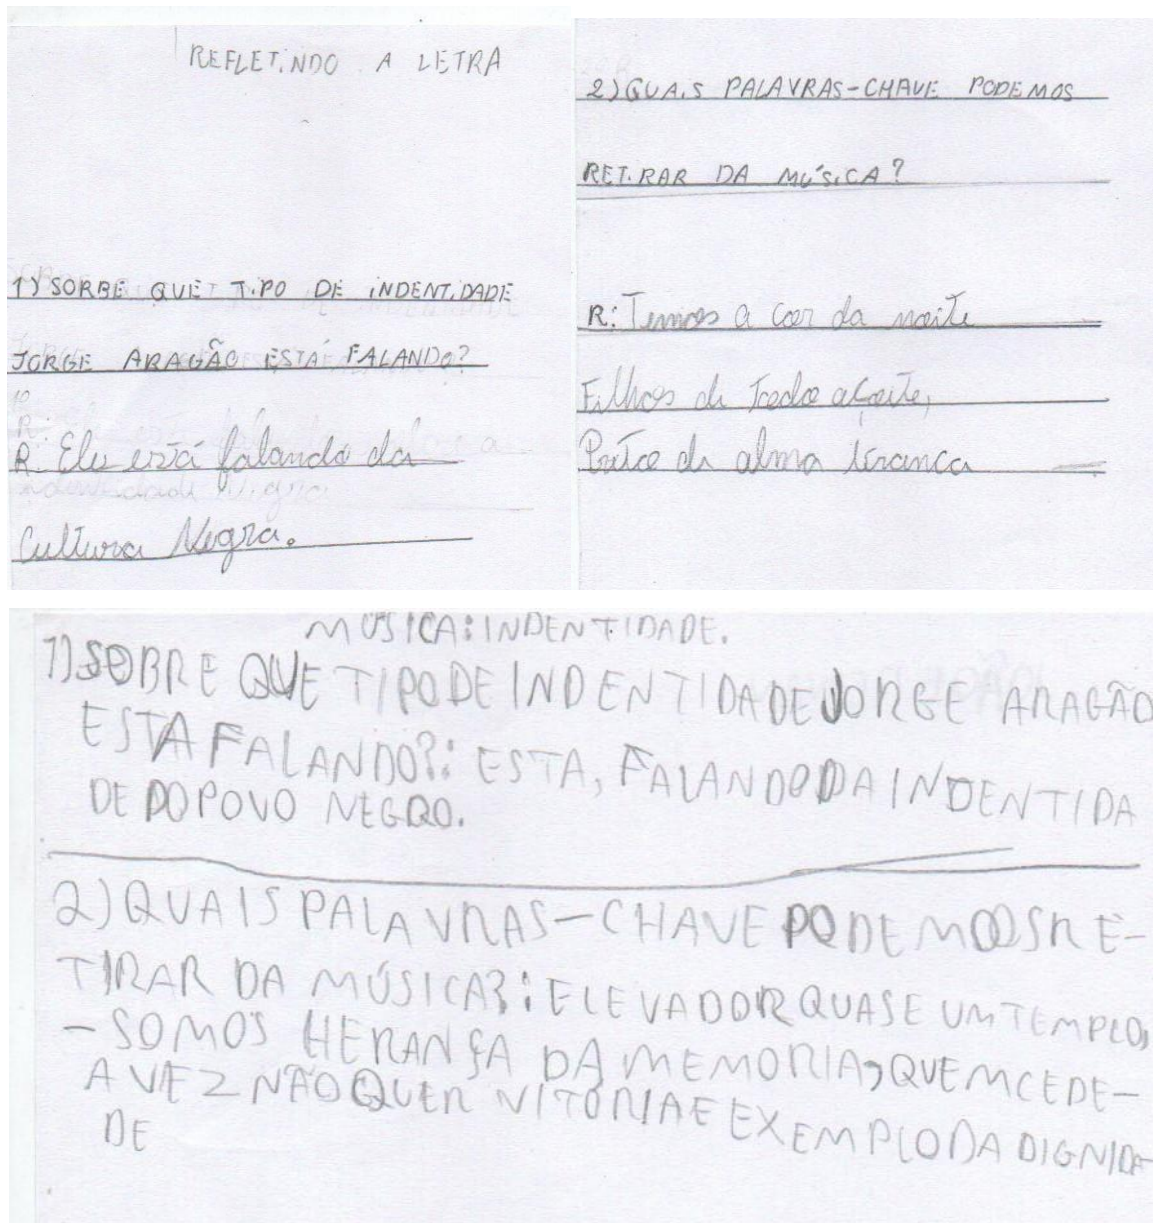 REFLETINDO A LETRA
1) SORBE QUE TIPO DE INDENTIDADE
JORGE ARAGÃO ESTÁ FALANDO?
R: Ele está falando da
Cultura Negra.
2) QUAIS PALAVRAS-CHAVE PODEMOS
RETIRAR DA MÚSICA?
R: Temos a cor da noite
Filhos de todo açoite,
Preto de alma branca
MÚSICA: INDENTIDADE.
1) SOBRE QUE TIPO DE INDENTIDADE JORGE ARAGÃO
ESTA FALANDO?: ESTA, FALANDO DA INDENTIDA
DE DO POVO NEGRO.
2) QUAIS PALAVRAS-CHAVE PODEMOS RE-
TIRAR DA MÚSICA?: ELEVADOR QUASE UM TEMPLO,
- SOMOS HERANÇA DA MEMORIA, QUEM CEDE-
A VEZ NÃO QUER VITÓRIA E EXEMPLO DA DIGNIDA-
DE